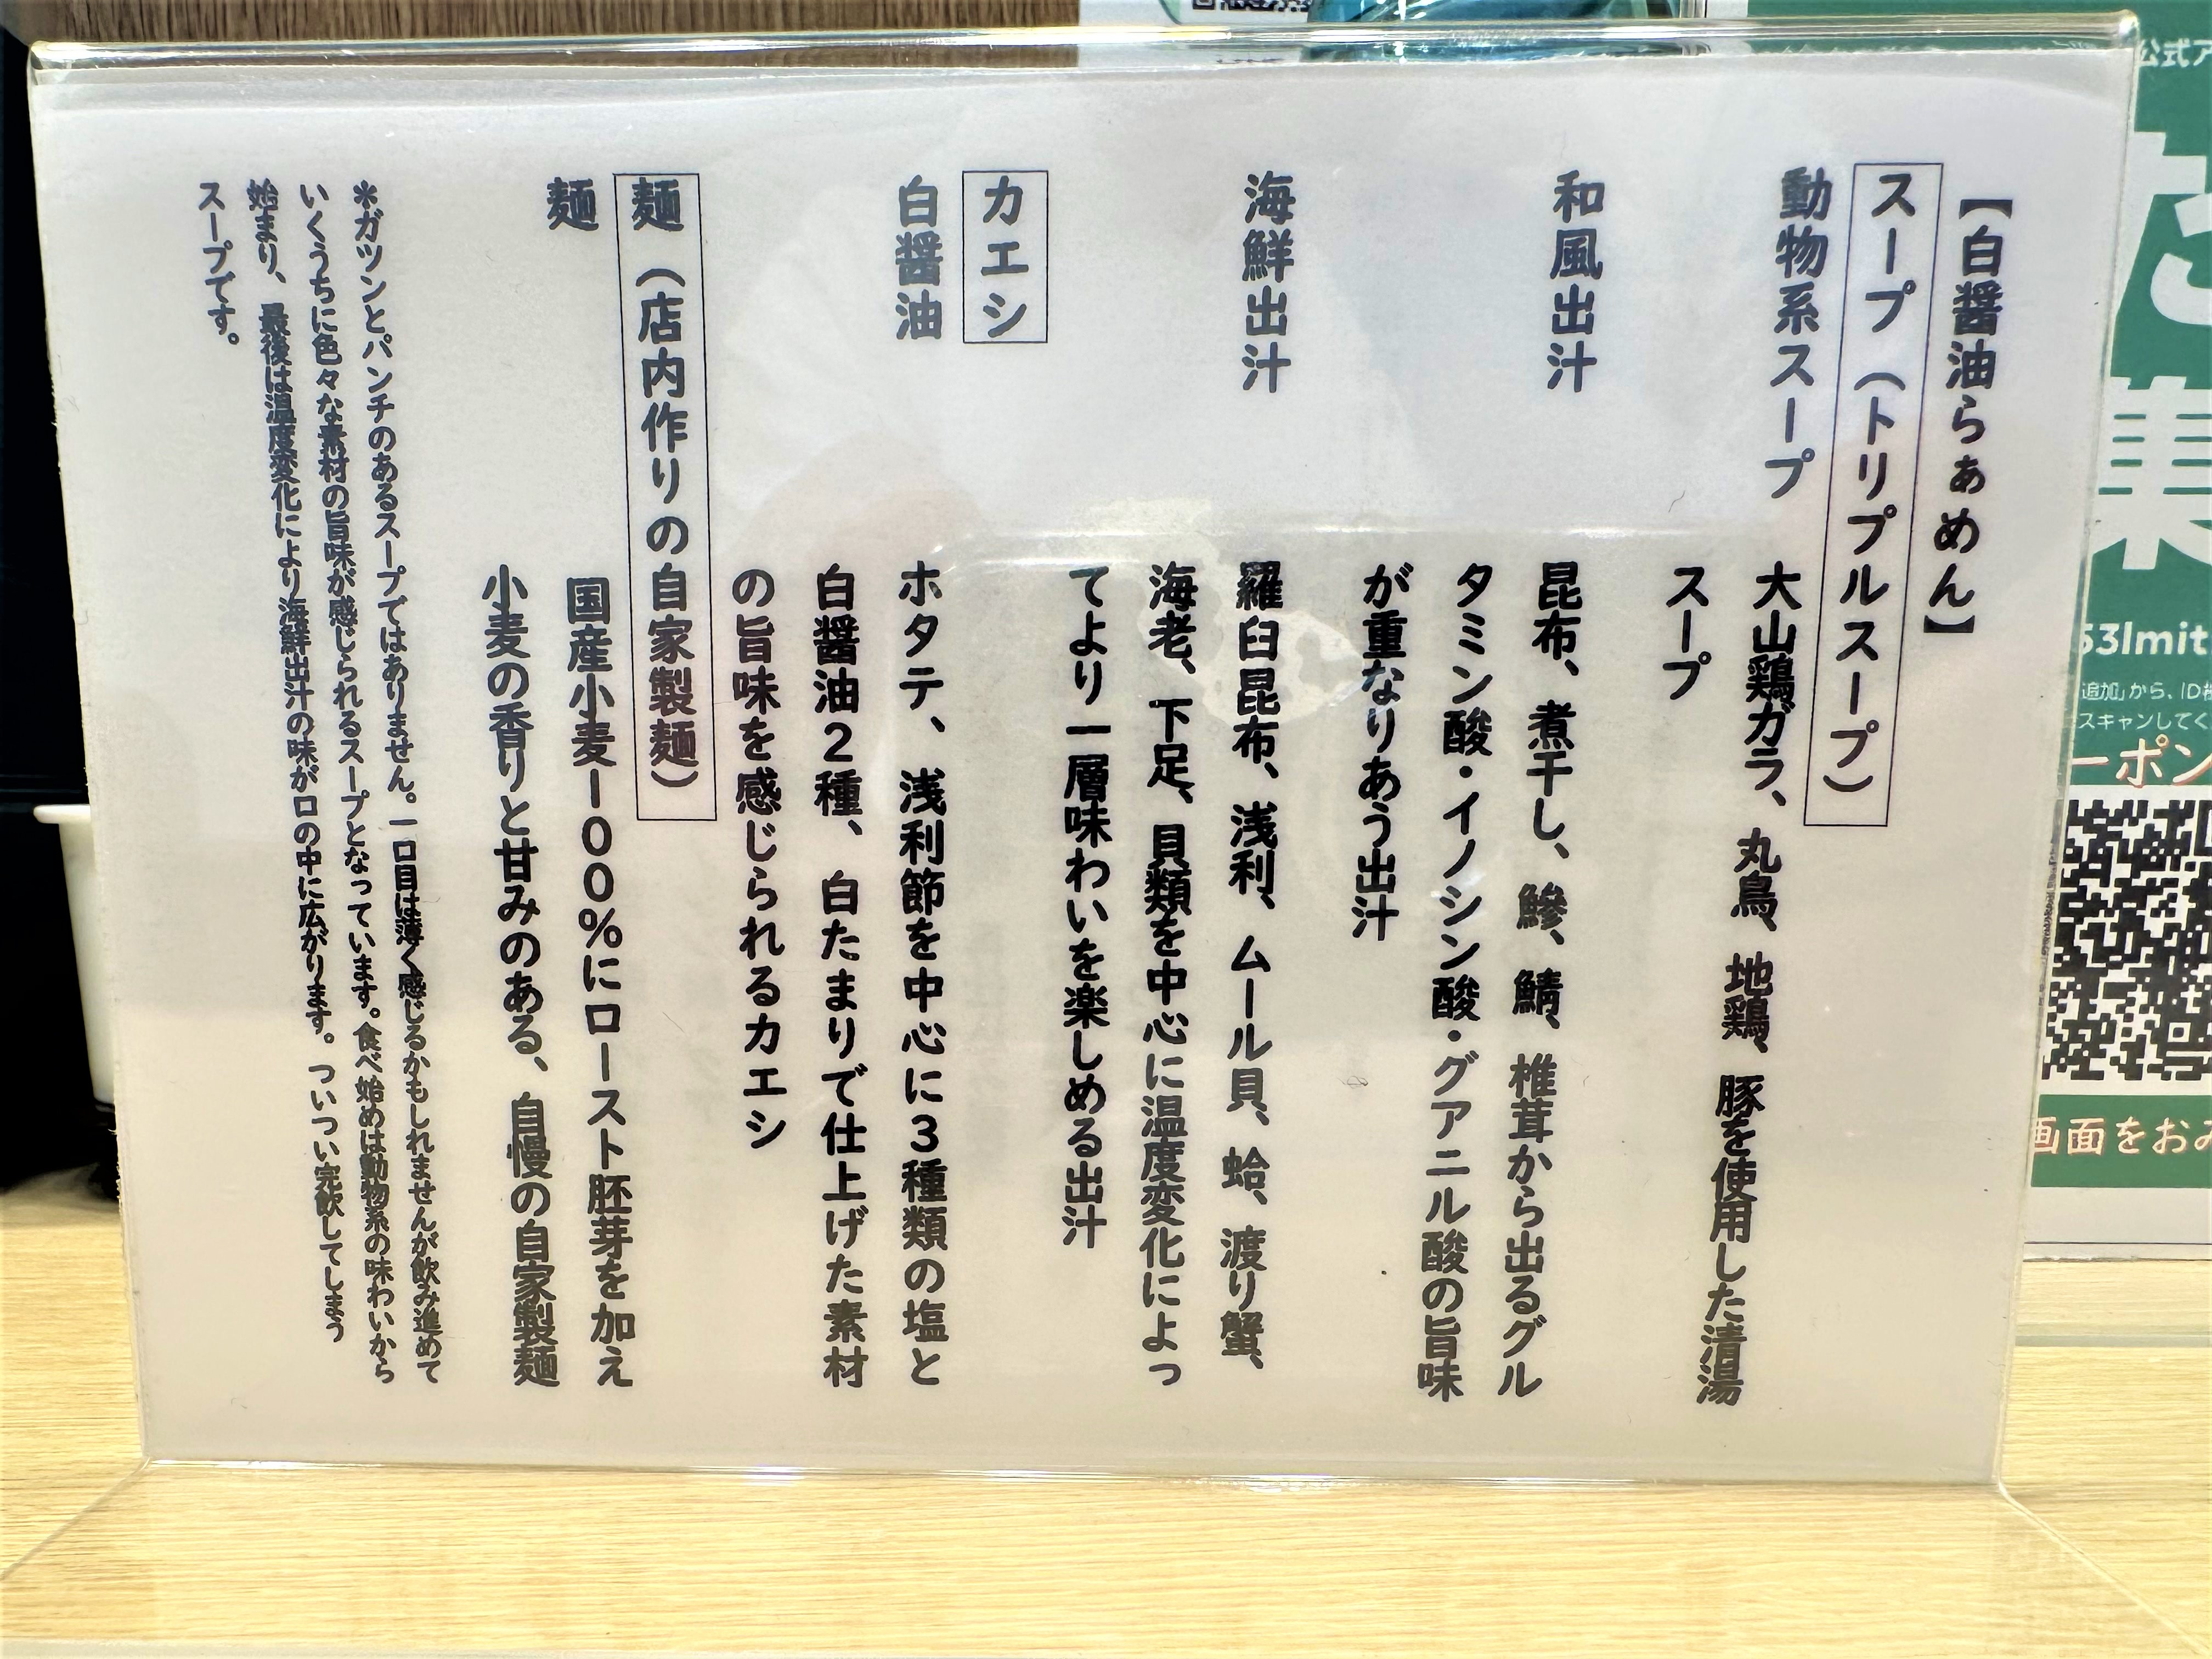 【白醤油らぁめん】
スープ（トリプルスープ）
動物系スープ
大山鶏ガラ、丸鳥、地鶏、豚を使用した清湯
スープ
和風出汁
昆布、煮干し、鯵、鯖、椎茸から出るグル
タミン酸・イノシン酸・グアニル酸の旨味
が重なりあう出汁
海鮮出汁
羅臼昆布、浅利、ムール貝、蛤、渡り蟹、
海老、下足、貝類を中心に温度変化によっ
てより一層味わいを楽しめる出汁
カエシ
白醤油
ホタテ、浅利節を中心に３種類の塩と
白醤油２種、白たまりで仕上げた素材
の旨味を感じられるカエシ
麺（店内作りの自家製麺）
麺
国産小麦１００％にロースト胚芽を加え
小麦の香りと甘みのある、自慢の自家製麺
＊ガツンとパンチのあるスープではありません。一口目は薄く感じるかもしれませんが飲み進めて
いくうちに色々な素材の旨味が感じられるスープとなっています。食べ始めは動物系の味わいから
始まり、最後は温度変化により海鮮出汁の味が口の中に広がります。ついつい完飲してしまう
スープです。
公式ア
53lmit
追加」から、ID
スキャンしてく
ーポン
画面をおみ